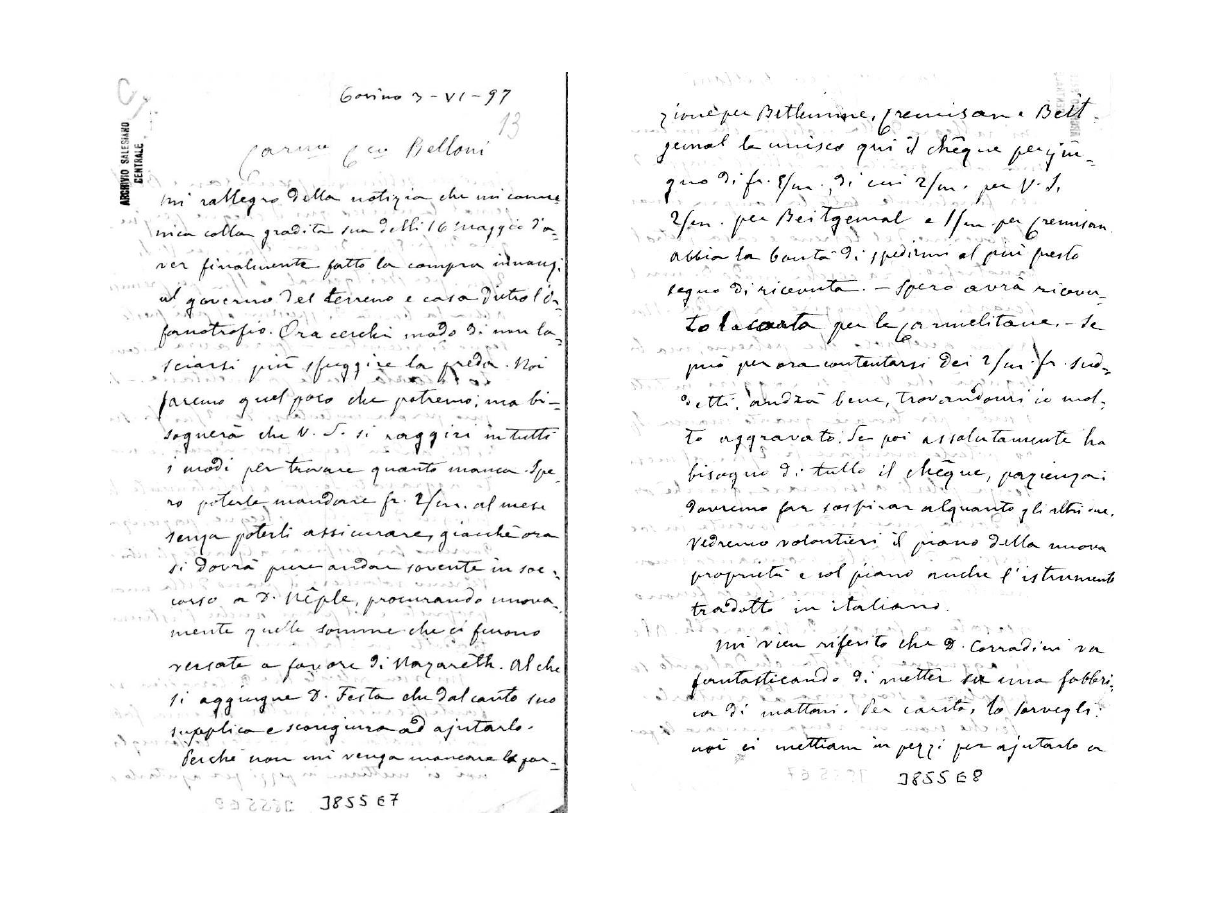 ARCHIVIO SALESIANO
CENTRALE
Torino 3-VI-97
13
Carmo Can Belloni
Mi rallegro della notizia che mi comu
nica colla gradita sua delli 16 maggio d'a-
ver finalmente fatto la compra innanzi
al governo del terreno e casa dietro l'or-
fanotrofio. Ora cerchi modo di non la-
sciarsi più sfuggire la preda. Noi
faremo quel poco che potremo; ma bi-
sognerà che V. S. si raggiri in tutti
i modi per trovare quanto manca. Spe-
ro poterle mandare fr. 2/m. al mese
senza poterli assicurare, giacchè ora
si dovrà pure andar sovente in soc-
corso a D. Nèple, procurando nuova-
mente quelle somme che ci furono
versate a favore di Nazareth. Al che
si aggiunge D. Festa che dal canto suo
supplica e scongiura ad ajutarlo.
Perchè non mi venga mancare la por-
J855E7
zione per Betlemme, Cremisan e Beit-
gemal le unisco qui il chêque per giu-
gno di fr. 5/m., di cui 2/m. per V. S.
2/m. per Beitgemal e 1/m per Cremisan
abbia la bontà di spedirmi al più presto
segno di ricevuta. – Spero avrà ricevu-
to la carta per le Carmelitane. – Se
può per ora contentarsi dei 2/m fr. sud-
detti, andrà bene, trovandomi io mol-
to aggravato. Se poi assolutamente ha
bisogno di tutto il chêque, pazienza:
dovremo far sospirar alquanto gli altri due.
Vedremo volontieri il piano della nuova
proprietà e col piano anche l'istrumento
tradotto in italiano.
Mi vien riferito che D. Corradini va
fantasticando di metter su una fabbri-
ca di mattoni. Per carità, lo sorvegli:
noi ci mettiam in pezzi per ajutarlo a
J855E8